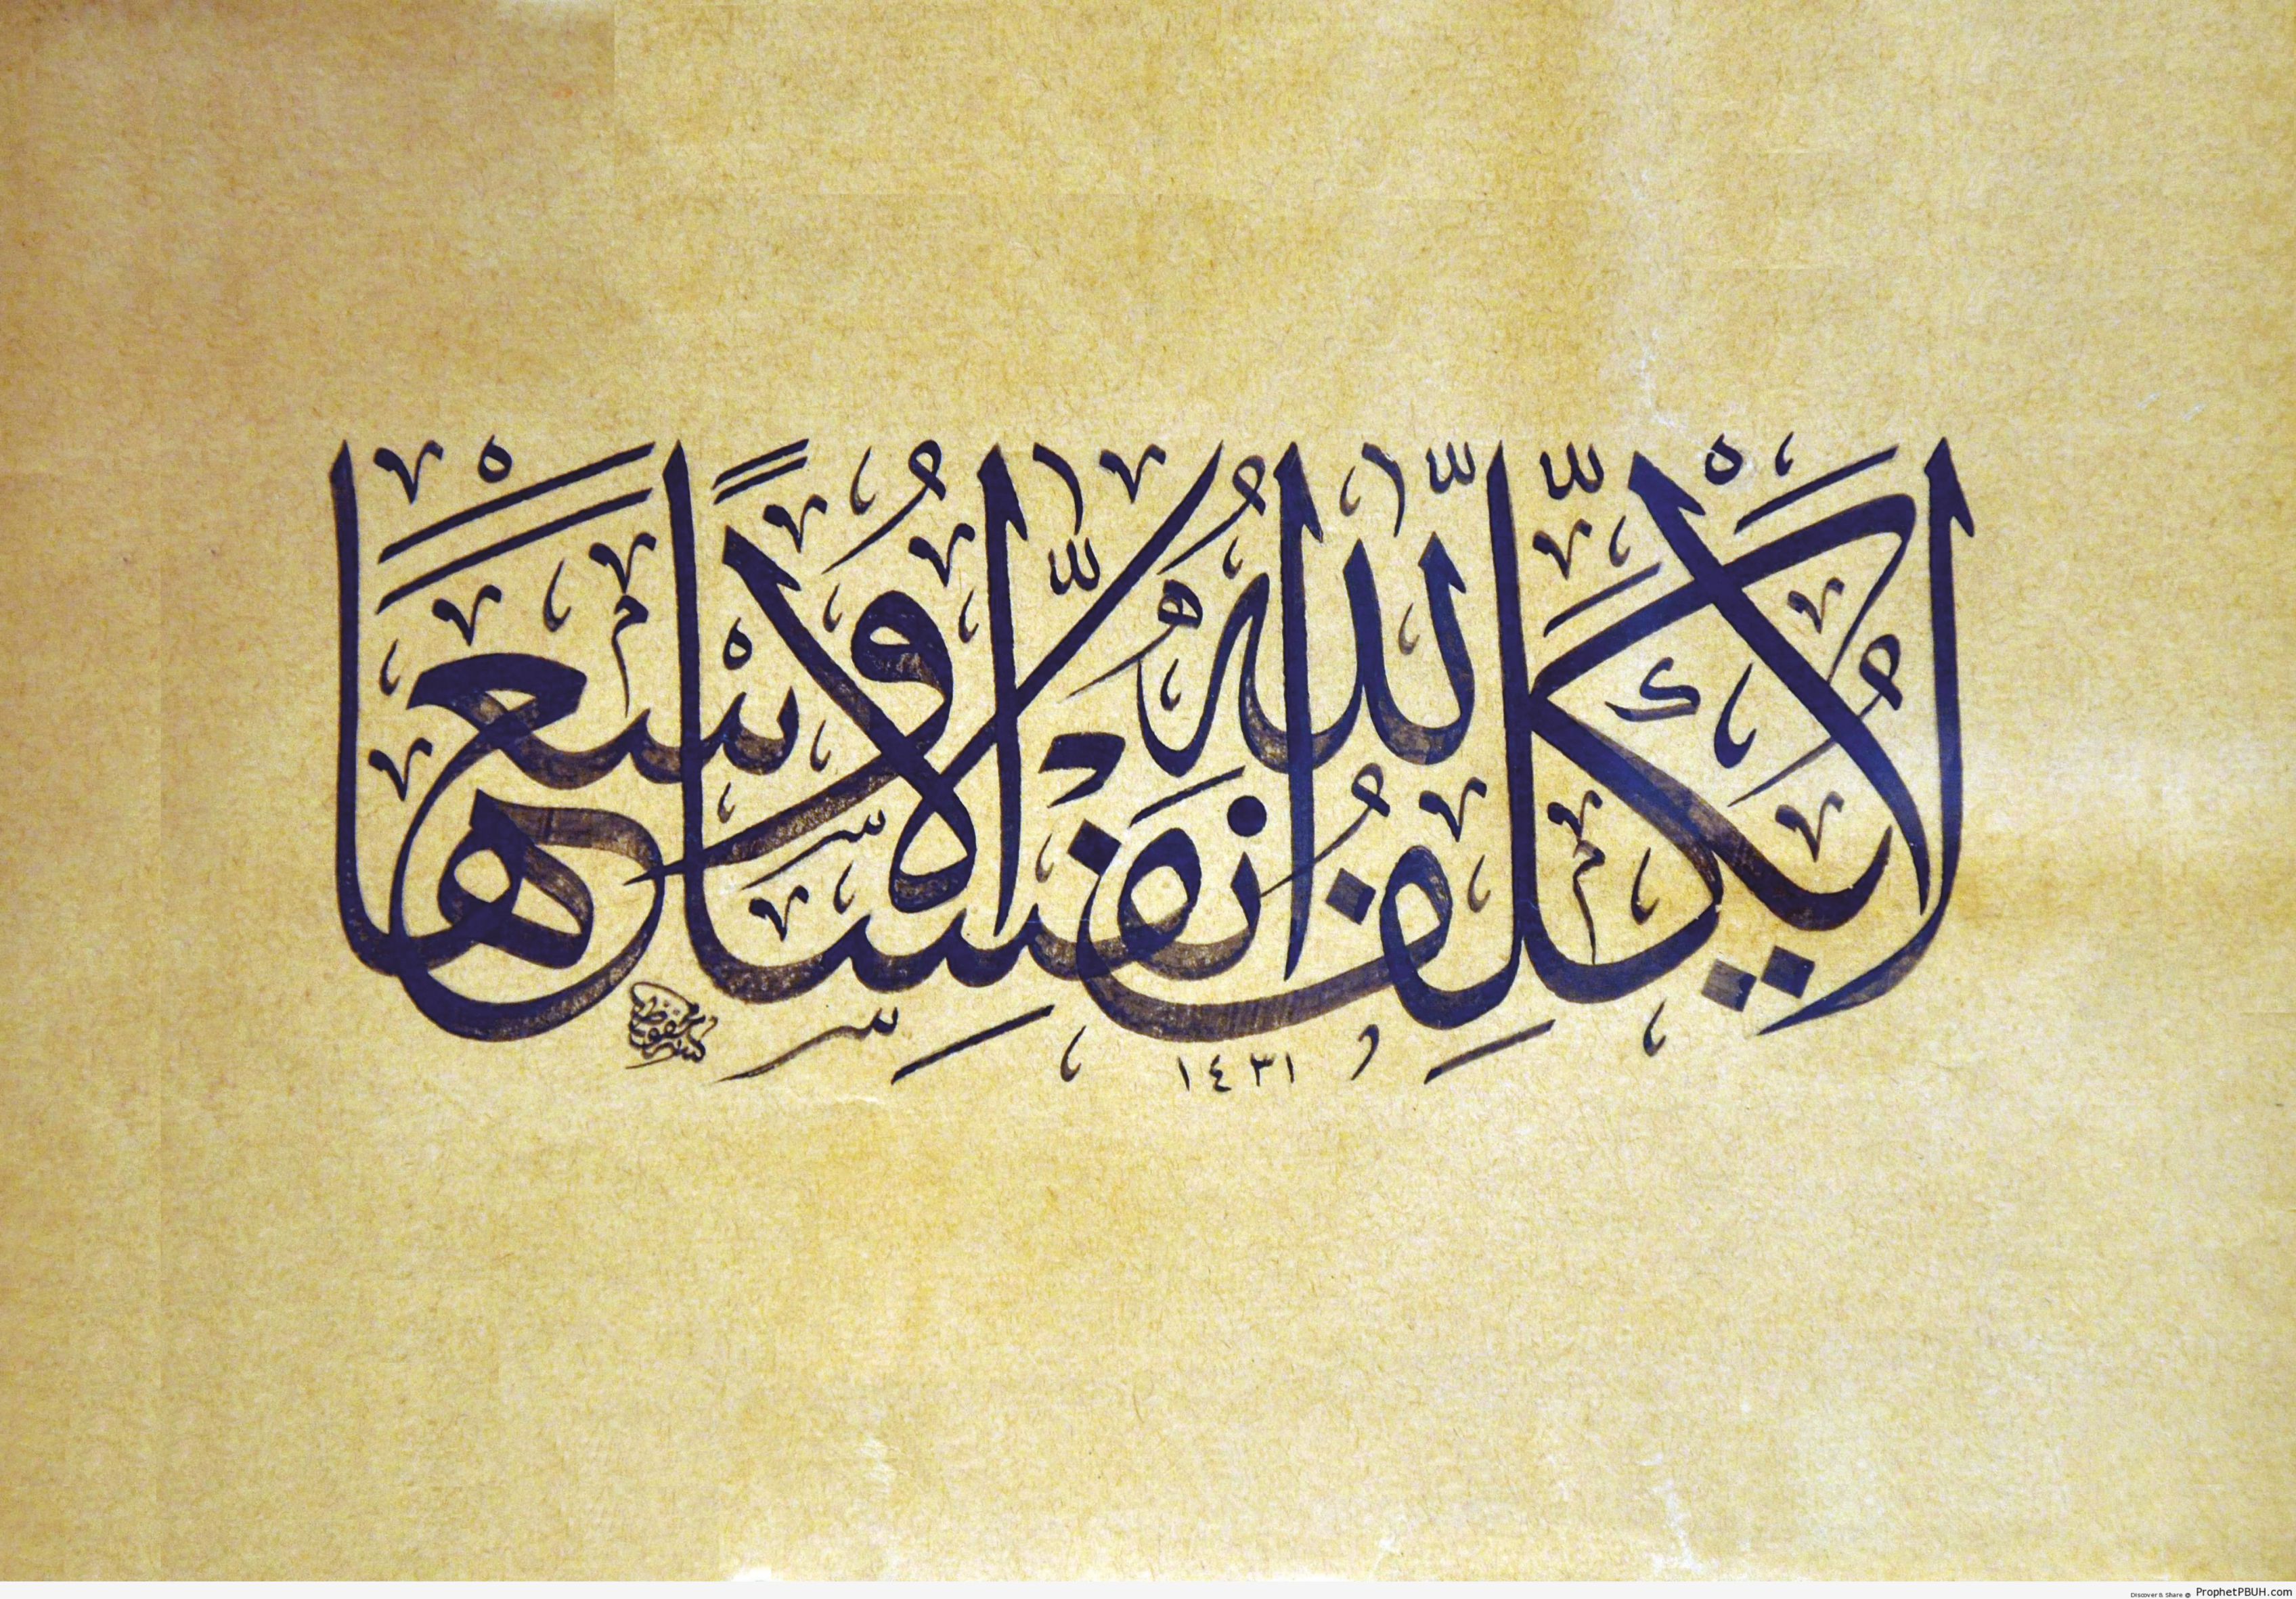 لَا يُكَلِّفُ اللّٰهُ نَفْسًا إِلَّا وُسْعَهَا
١٤٣١
Discover & Share @ ProphetPBUH.com